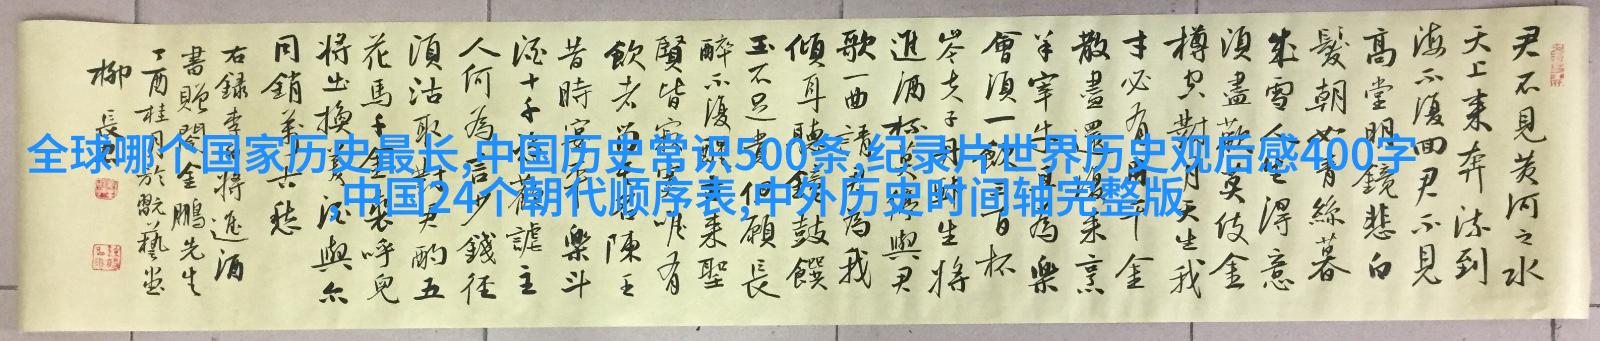 君不見黃河之水
天上来奔流到
海不復回君不見
高堂明鏡悲白
髮朝如青絲暮
成雪人生得意
須盡歡莫使金
樽空對月天生我
才必有用千金
散盡還復来烹
羊宰牛且為樂
會須一飲三百杯
岑夫子丹邱生將
進酒杯莫停與君
歌一曲請君為我
傾耳聽鐘鼓饌
玉不足貴但願長
醉不復醒古来聖
賢皆寂寞唯有
飲者留其名陳王
昔時宴平樂斗
酒十千恣歡謔主
人何為言少錢徑
須沽取對君酌五
花馬千金裘呼兒
將出換美酒與尔
同銷萬古愁
右録李白將進酒
書贈閻金鵬先生
丁酉桂月於翫藝堂
柳長
全球哪个国家历史最长,中国历史常识500条,纪录片世界历史观后感400字
中国24个朝代顺序表,中外历史时间轴完整版